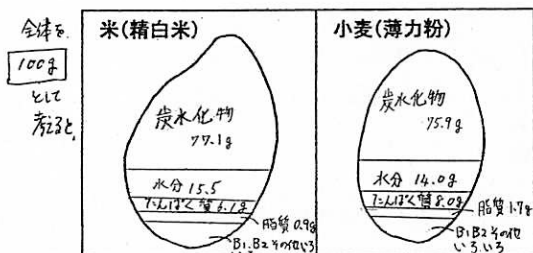 全体を
100g
として
考えると、
米(精白米)
炭水化物
77.1g
水分 15.5
たんぱく質 6.1g
脂質 0.9g
B1.B2 その他いろ
小麦(薄力粉)
炭水化物
75.9g
水分 14.0g
たんぱく質 8.0g
脂質 1.7g
B1.B2 その他
いろいろ